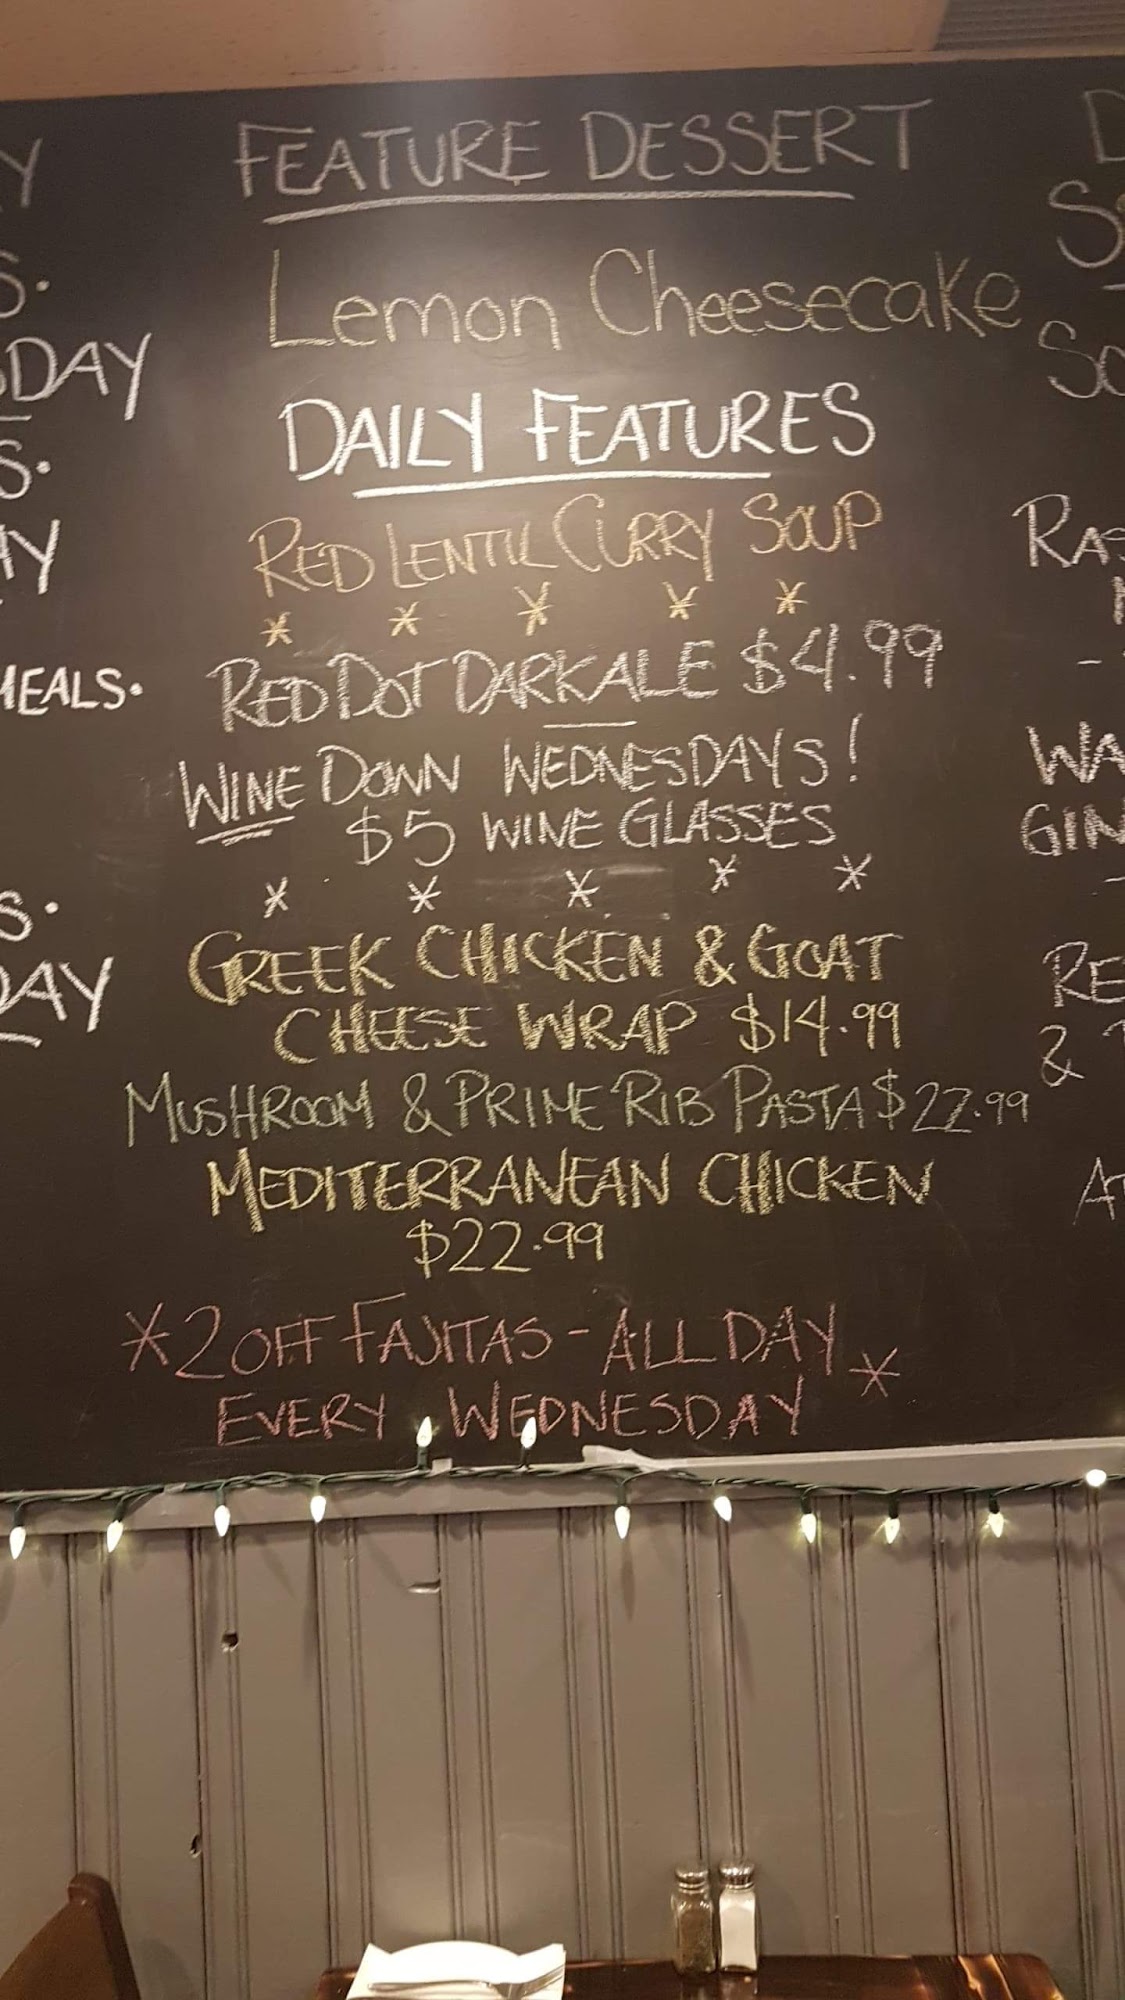 Y
S.
DAY
S.
AY
MEALS.
S.
DAY
FEATURE DESSERT
Lemon Cheesecake
DAILY FEATURES
RED LENTIL CURRY SOUP
* * * * *
RED DOT DARK ALE $4.99
WINE DOWN WEDNESDAYS!
$5 WINE GLASSES
* * * * *
GREEK CHICKEN & GOAT
CHEESE WRAP $14.99
MUSHROOM & PRIME RIB PASTA $22.99
MEDITERRANEAN CHICKEN
$22.99
*2 OFF FAJITAS - ALL DAY
EVERY WEDNESDAY *
D
So
So
RAS
-
WA
GIN
-
RE
&
AT